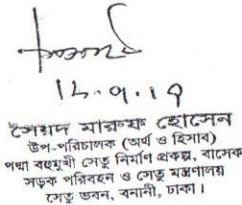 ১২.৭.১৭
সৈয়দ মারুফ হোসেন
উপ-পরিচালক (অর্থ ও হিসাব)
পদ্মা বহুমুখী সেতু নির্মাণ প্রকল্প, বাসেক
সড়ক পরিবহন ও সেতু মন্ত্রণালয়
সেতু ভবন, বনানী, ঢাকা।